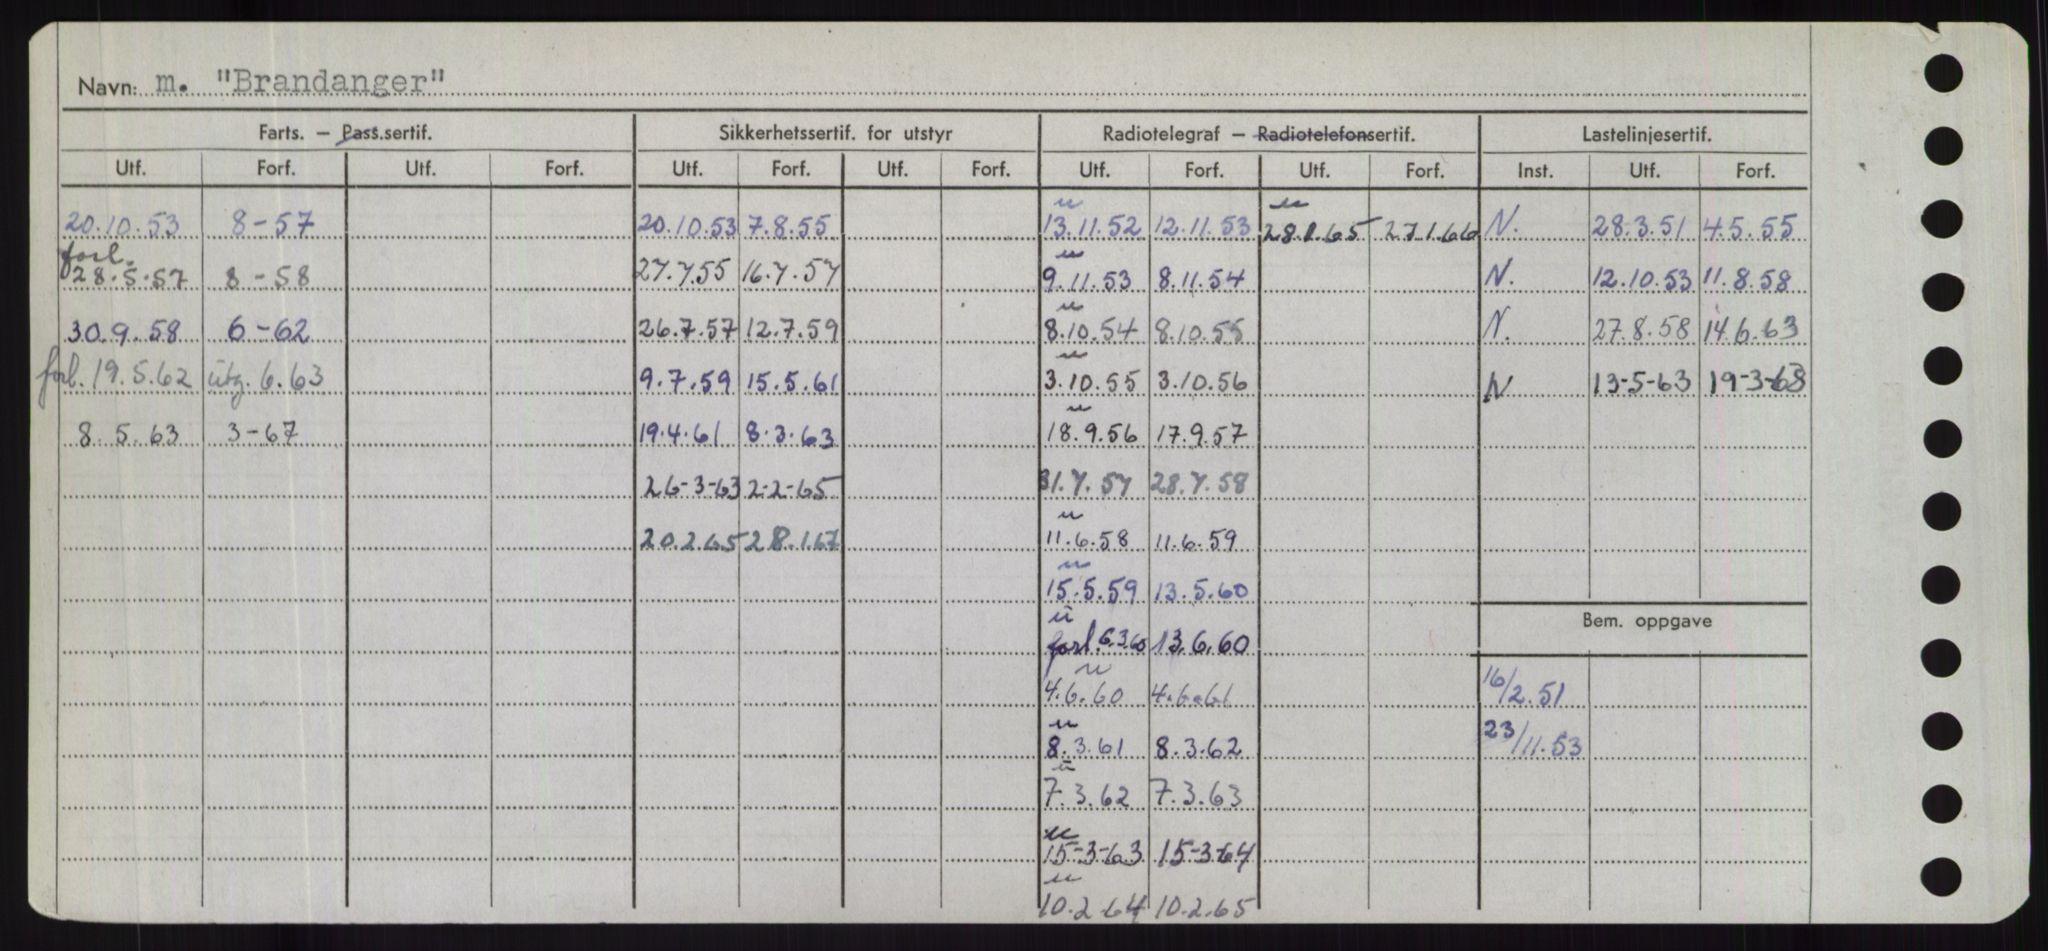 Navn: m. "Brandanger"
Farts. – Pass.sertif. Sikkerhetssertif. for utstyr Radiotelegraf – Radiotelefonsertif. Lastelinjesertif.
Utf. Forf. Utf. Forf. Utf. Forf. Utf. Forf. Utf. Forf. Utf. Forf. Inst. Utf. Forf.
u u
20.10.53 8-57 20.10.53 7.8.55 13.11.52 12.11.53 28.1.65 27.1.66 N. 28.3.51 4.5.55
forl. u
28.5.57 8-58 27.7.55 16.7.57 9.11.53 8.11.54 N. 12.10.53 11.8.58
u
30.9.58 6-62 26.7.57 12.7.59 8.10.54 8.10.55 N. 27.8.58 14.6.63
u
forl. 19.5.62 utg. 6.63 9.7.59 15.5.61 3.10.55 3.10.56 N 13-5-63 19-3-68
u
8.5.63 3-67 19.4.61 8.3.63 18.9.56 17.9.57
26-3-63 2-2-65 31.7.57 28.7.58
u
20.2.65 28.1.67 11.6.58 11.6.59
u
15.5.59 13.5.60
u Bem. oppgave
forl. 6.3.60 13.6.60
u
4.6.60 4.6.61 16/2.51
u
8.3.61 8.3.62 23/11.53
u
7.3.62 7.3.63
u
15-3-63 15-3-64
u
10.2.64 10.2.65